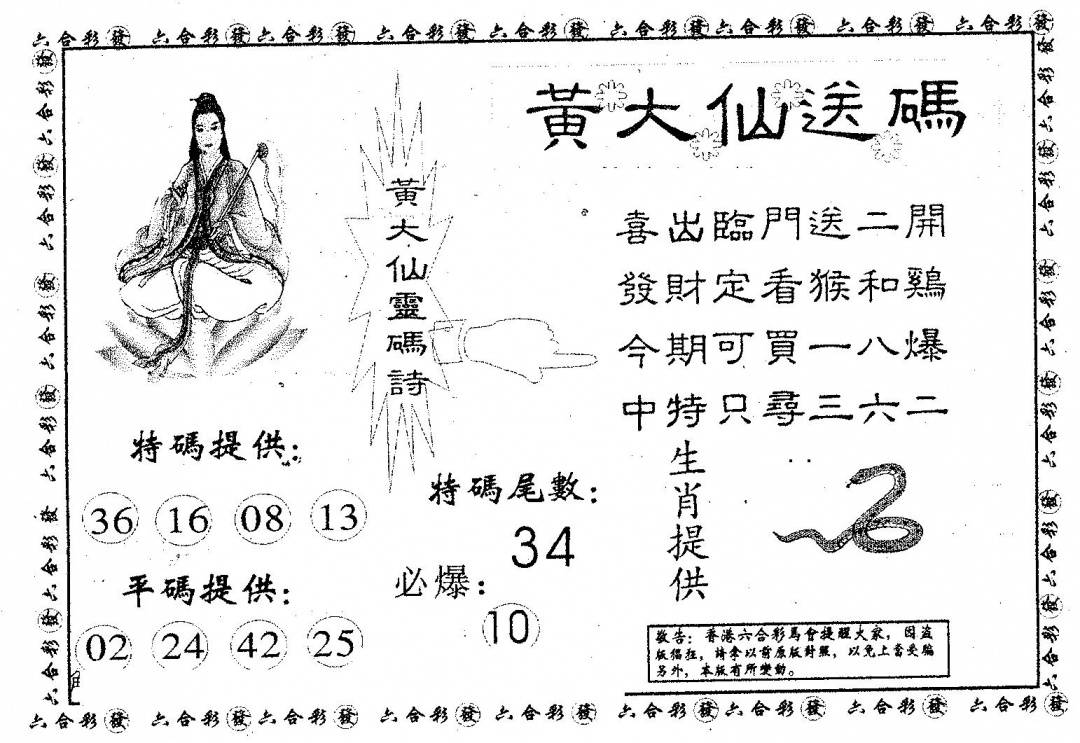 六合彩發 六合彩發 六合彩發 六合彩發 六合彩發 六合彩發 六合彩發 六合彩發 六合彩發
黃大仙送碼
黃大仙靈碼詩
喜出臨門送二開
發財定看猴和鷄
今期可買一八爆
中特只尋三六二
特碼提供:
36 16 08 13
平碼提供:
02 24 42 25
特碼尾數:
34
必爆:
10
生肖提供
敬告：香港六合彩馬會提醒大家，因盜
版猖狂，請拿以前原版對照，以免上當受騙
另外，本版有所變動。
六合彩發 六合彩發 六合彩發 六合彩發 六合彩發 六合彩發 六合彩發 六合彩發 六合彩發